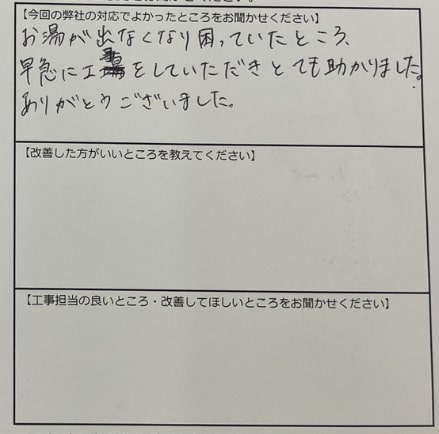 【今回の弊社の対応でよかったところをお聞かせください】
お湯が出なくなり困っていたところ、
早急に工事をしていただきとても助かりました。
ありがとうございました。
【改善した方がいいところを教えてください】
【工事担当の良いところ・改善してほしいところをお聞かせください】